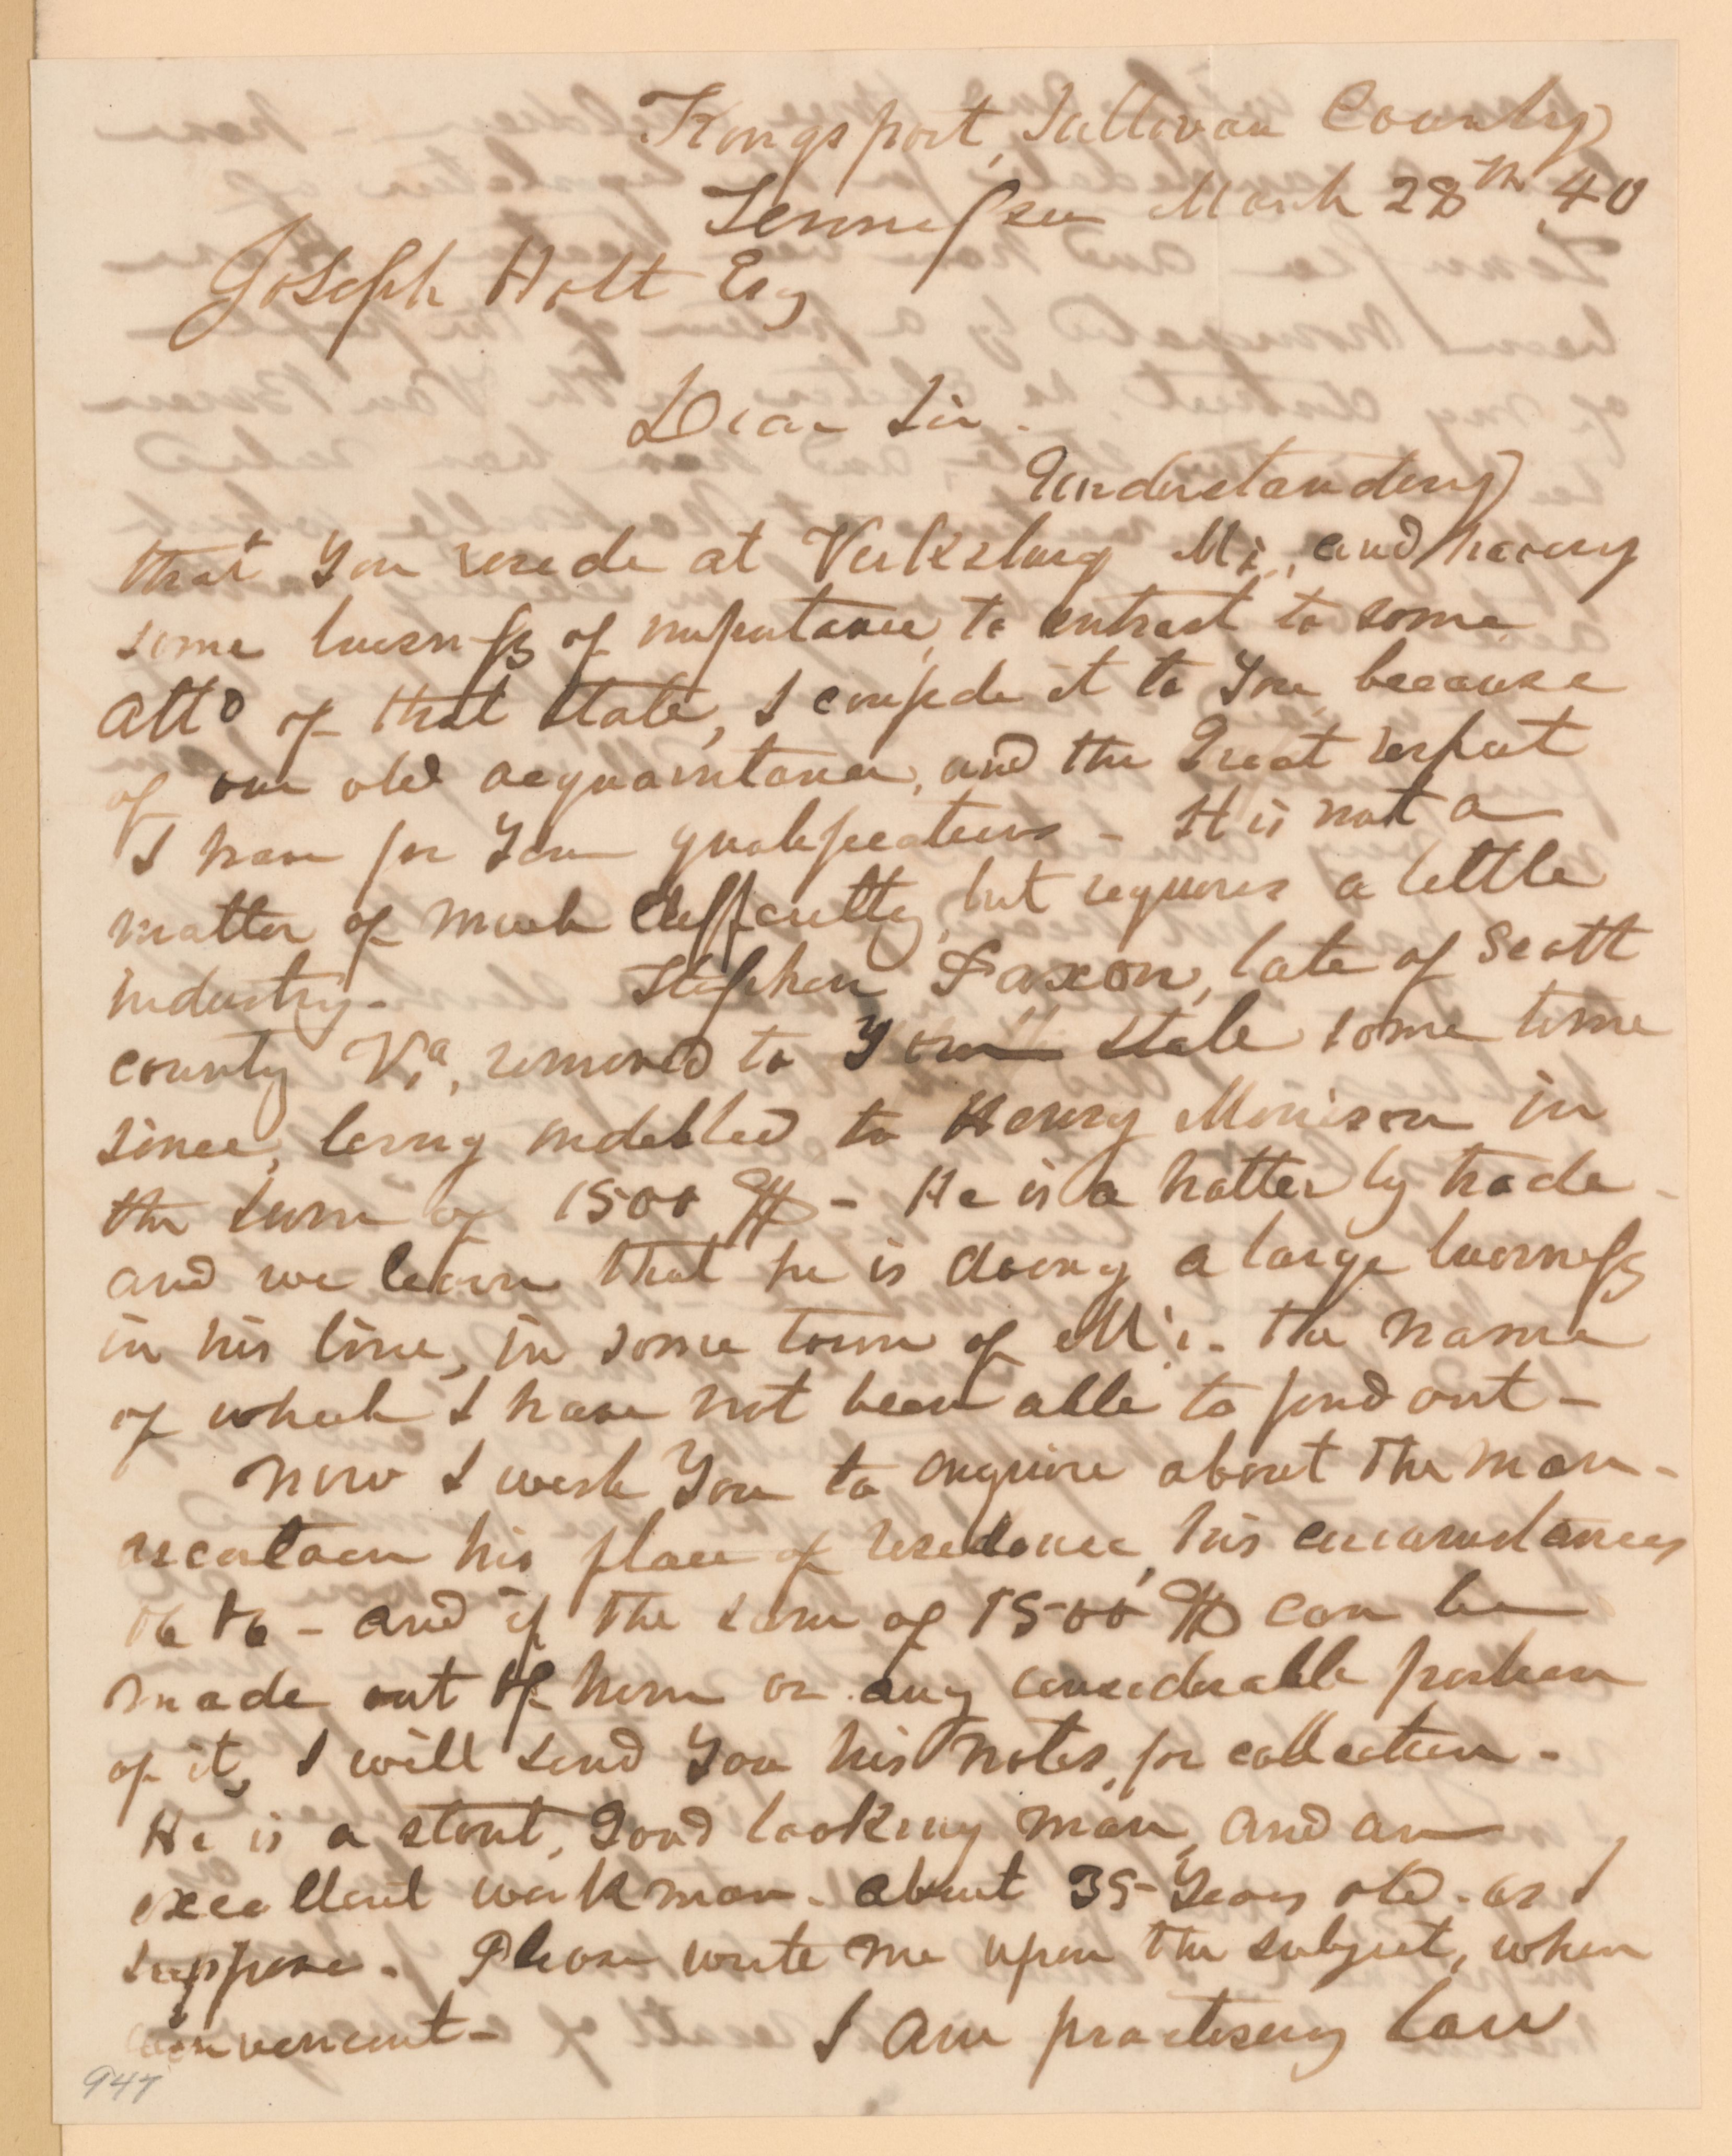 Kingsport, Sullivan County
Tennessee March 28th 40
Joseph Holt Esq
Dear Sir.
Understanding
that You reside at Vicksburg Mi, and having
some business of importance, to entrust to some
Atto of that State, I confide it to You, because
of our old acquaintance, and the Great respect
I have for Your qualifications - It is not a
matter of much difficulty, but requires a little
industry - Stephen Faxon, late of Scott
county Va, removed to Your state some time
since, being indebted to Henry Morison in
the sum of 1500 $ - He is a hatter by trade -
and we learn that he is doing a large business
in his line, in some town of Mi. the name
of which I have not been able to find out -
Now I wish You to enquire about the man -
ascertain his place of residence, his circumstances
&c &c - and if the sum of 1500 $ can be
made out of him or any considerable portion
of it, I will send You his notes, for collection -
He is a stout, Good looking man, and an
excellent workman - about 35 Years old - as I
suppose. Please write me upon the subject, when
convenient - I am practising law
947